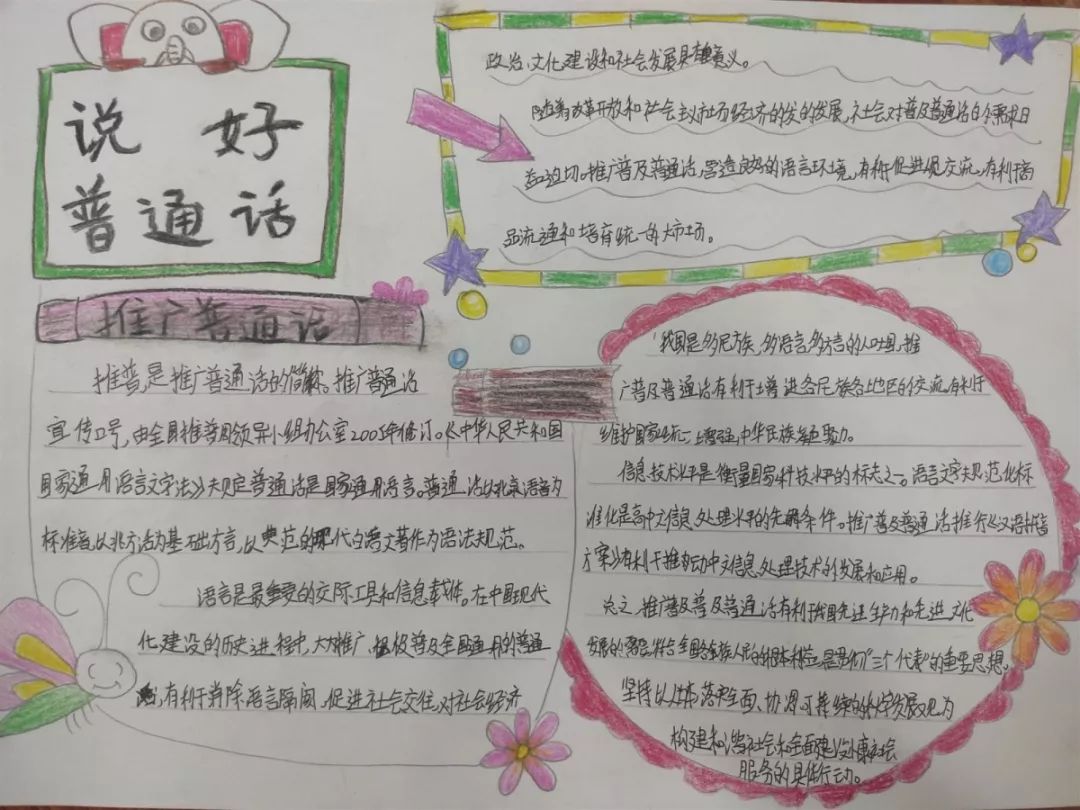 说好
普通话
推广普通话
推普,是推广普通话的简称。推广普通话
宣传口号,由全国推普领导小组办公室2005年修订。《中华人民共和国
国家通用语言文字法》规定普通话是国家通用语言。普通话以北京语音为
标准音,以北方话为基础方言,以典范的现代白话文著作为语法规范。
语言是最重要的交际工具和信息载体。在中国现代
化建设的历史进程中,大力推广,积极普及全国通用的普通
话,有利于消除语言隔阂,促进社会交往,对社会经济
政治,文化,建设和社会发展具有重要意义。
随着改革开放和社会主义市场经济的发的发展,社会对普及普通话的需求日
益迫切。推广普及普通话,营造良好的语言环境,有利促进促交流,有利商
品流通和培育统一的大市场。
我国是多民族,多语言,多方言的人口大国,推
广普及普通话有利于增进各民族各地区的交流,有利于
维护国家统一,增强中华民族凝聚力。
信息技术水平是衡量国家科技水平的标志之一。语言文字规范化标
准化是高中文信息处理水平的先决条件。推广普及普通话推行《汉语拼音
方案》有利于推动中文信息处理技术的发展和应用。
总之,推广普及普及普通话有利我国先进生产力和先进文化
发展的需要,符合全国各族人民的根本利益,是是们"三个代表"的重要思想。
坚持以人为本,落实全面、协调、可持续的科学发展观为
构建和谐社会和全面建设小康社会
服务的具体行动。